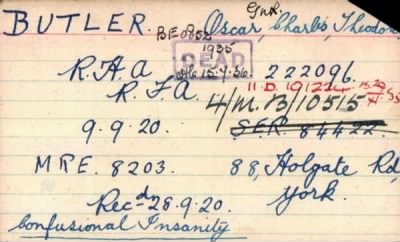 Gnr.
BUTLER. Oscar, Charles, Theodore
BE 0852
1935
DEAD
R.H.A 15.7.36. 222096.
R.F.A. 11.D.19/22
4/M.B/10515
9.9.20. SER 84422
MRE. 8203. 88, Holgate Rd,
York.
Rec'd 28.9.20.
Confusional Insanity